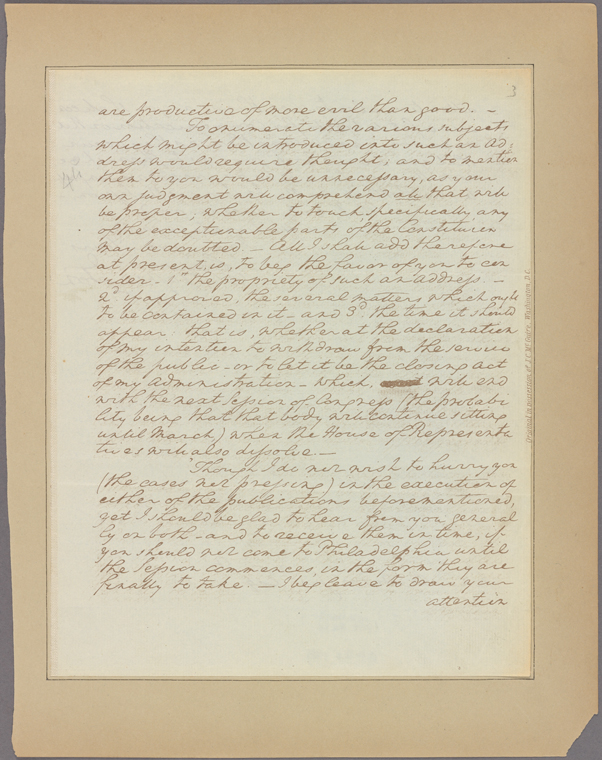 3
are productive of more evil than good. –
To enumerate the various subjects
which might be introduced into such an Ad:
dress would require thought; and to mention
them to you would be unnecessary, as your
own judgment will comprehend all that will
be proper; whether to touch specifically, any
of the exceptionable parts of the Constitution
may be doubted. – All I shall add therefore
at present, is, to beg the favor of you to con
sider – 1st the propriety of such an Address. –
2d if approved, the several matters which ought
to be contained in it – and 3d the time it should
appear: that is, whether at the declaration
of my intention to withdraw from the service
of the public – or to let it be the closing act
of my Administration – which, will end
with the next Session of Congress (the probabi
lity being that that body will continue sitting
until March,) when the House of Representa
tives will also dissolve. –
Though I do not wish to hurry you
(the cases not pressing) in the execution of
either of the publications beforementioned,
yet I should be glad to hear from you general
ly on both – and to receive them in time, if
you should not come to Philadelphia until
the Session commences, in the form they are
finally to take. – I beg leave to draw your
attention